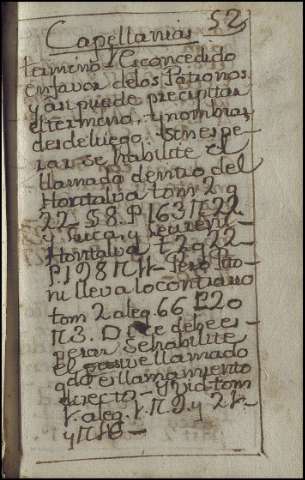 Capellanias 52
termino Esconcedido
enfavor delos Patronos
y asi puede precipitar
el termino, y nombrar
desde luego. Sin espe-
rar se habilite el
llamado dentro del
Hontalva tom 2 q
22 - § 8. P. 163 N. 22
y
Hontalva t 2 q 22 -
P. 198 N. Pero Pto-
ni lleva lo contrario
tom 2 aleg. 66 P. 20
N 3. Dice debe es-
perar se habilite
el llamado
qdo es llamamiento
directo - y tom
aleg. N. 9. y 2
y N.